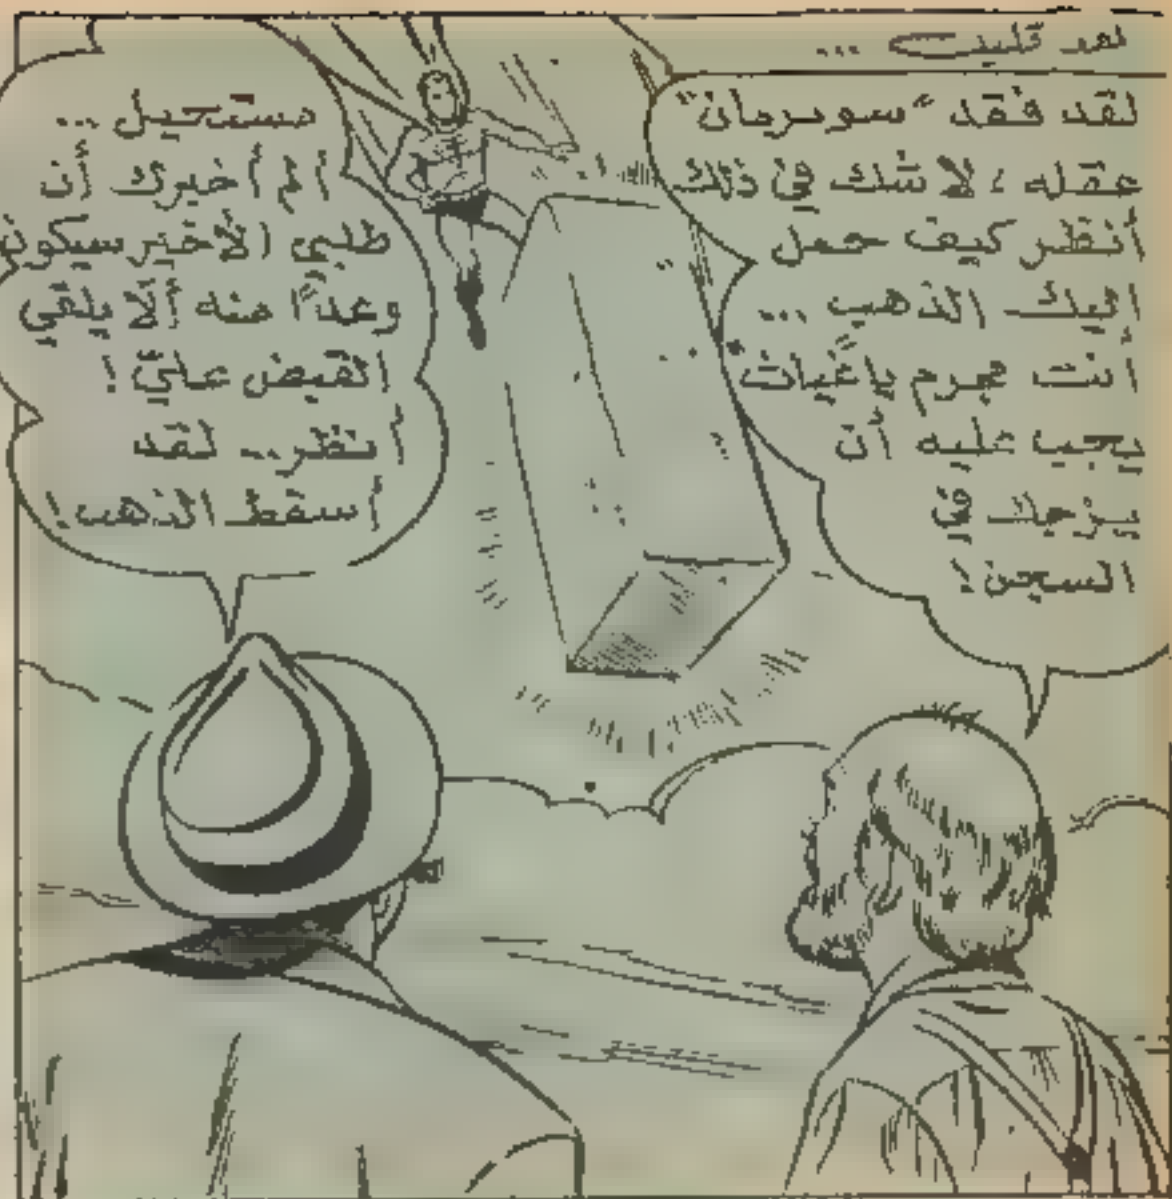 بعد قليل ...
لقد فقد "سوبرمان"
عقله ، لا شك في ذلك
أنظر كيف حمل
إليك الذهب ...
أنت مجرم بإثبات
يجب عليه أن
يزجك في
السجن !
مستحيل ...
ألم أخبرك أن
طلبي الأخير سيكون
وعداً منه ألا يلقي
القبض عليّ !
أنظر... لقد
أسقط الذهب !